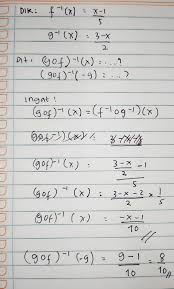 Dik: f⁻¹(x) = x-1/5
g⁻¹(x) = 3-x/2
Dit: (gof)⁻¹(x) = ...?
(gof)⁻¹(-9) = ...?
Ingat!
(gof)⁻¹(x) = (f⁻¹og⁻¹)(x)
(gof)⁻¹(x) = 3-x/2 -1 / 5
(gof)⁻¹(x) = 3-x-2/2 × 1/5
(gof)⁻¹(x) = -x-1/10 //
(gof)⁻¹(-9) = 9-1/10 = 8/10 //